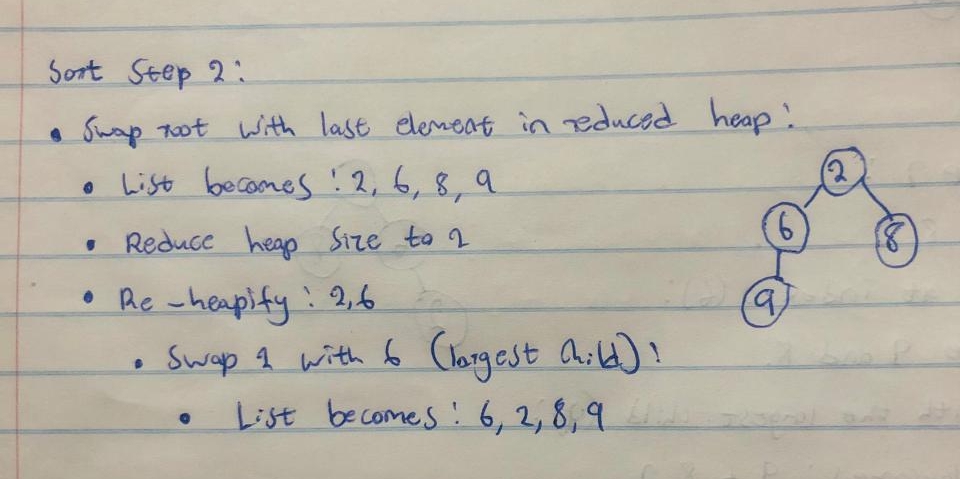 Sort Step 2:
• Swap root with last element in reduced heap:
• List becomes: 2, 6, 8, 9
• Reduce heap size to 2
• Re-heapify: 2,6
• Swap 2 with 6 (largest child):
• List becomes: 6, 2, 8, 9
2
6
8
9